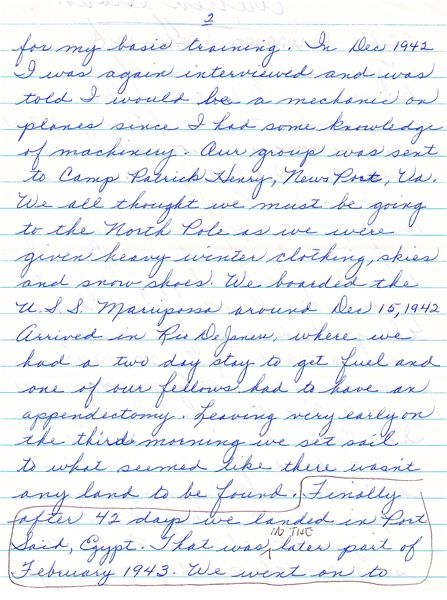 2
for my basic training. In Dec 1942
I was again interviewed and was
told I would be a mechanic on
planes since I had some knowledge
of machinery. Our group was sent
to Camp Patrick Henry, News Port, Va.
We all thought we must be going
to the North Pole as we were
given heavy winter clothing, skies
and snow shoes. We boarded the
U.S.S. Mariposa around Dec 15, 1942
Arrived in Rio De Janeru, where we
had a two day stay to get fuel and
one of our fellows had to have an
appendectomy. Leaving very early on
the third morning we set sail
to what seemed like there wasn't
any land to be found. Finally
after 42 days we landed in Port
Said, Egypt. That was IN THE later part of
February 1943. We went on to